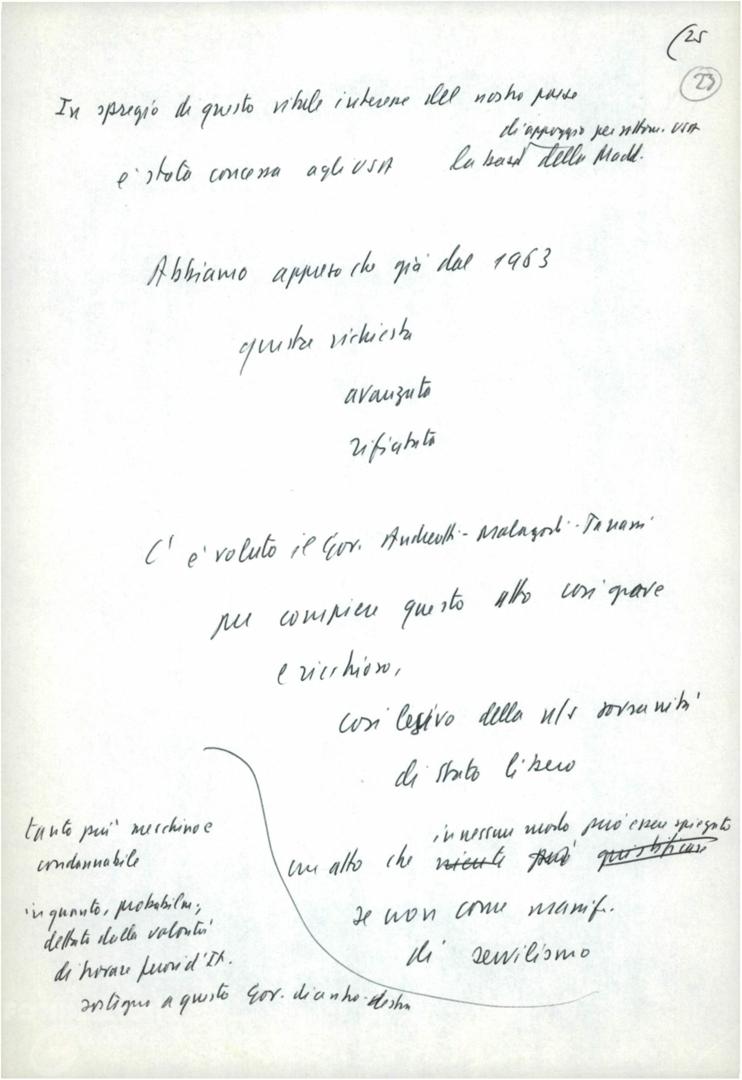 (25
23
In spregio di questo vitale interesse del nostro paese
di appoggio per sottom. USA
è stata concessa agli USA la base della Madd.
Abbiamo appreso che già dal 1963
questa richiesta
avanzata
rifiutata
C'è voluto il Gov. Andreotti - Malagodi - Tanassi
per compiere questo atto così grave
e rischioso,
così lesivo della n/s sovranità
di stato libero
in nessun modo può essere spiegato
un atto che niente può giustificare
se non come manif.
di servilismo
tanto più meschino e
condannabile
in quanto, probabilm.,
dettato dalla volontà
di trovare fuori d'It.
sostegno a questo Gov. di centro-destra